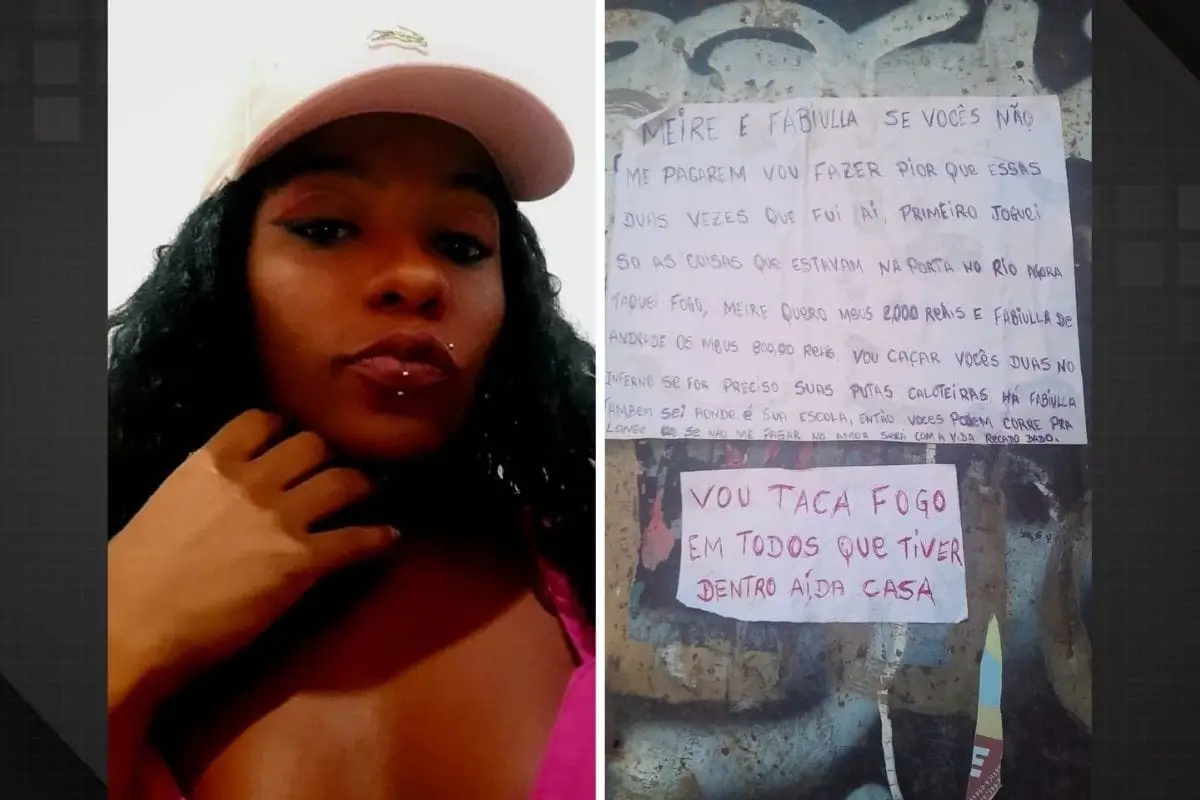 MEIRE E FABIULLA SE VOCÊS NÃO
ME PAGAREM VOU FAZER PIOR QUE ESSAS
DUAS VEZES QUE FUI AÍ, PRIMEIRO JOGUEI
SO AS COISAS QUE ESTAVAM NA PORTA NO RIO AGORA
TAQUEI FOGO, MEIRE QUERO MEUS 2000 REAIS E FABIULLA DE
ANDRADE OS MEUS 800,00 REAIS, VOU CAÇAR VOCÊS DUAS NO
INFERNO SE FOR PRECISO SUAS PUTAS CALOTEIRAS, HÁ FABIULLA
TAMBEM SEI AONDE É SUA ESCOLA, ENTÃO VOCES PODEM CORRE PRA
LONGE SE NÃO ME PAGAR NO AMOR SERÁ COM A VIDA RECADO DADO.
VOU TACA FOGO
EM TODOS QUE TIVER
DENTRO AÍ DA CASA